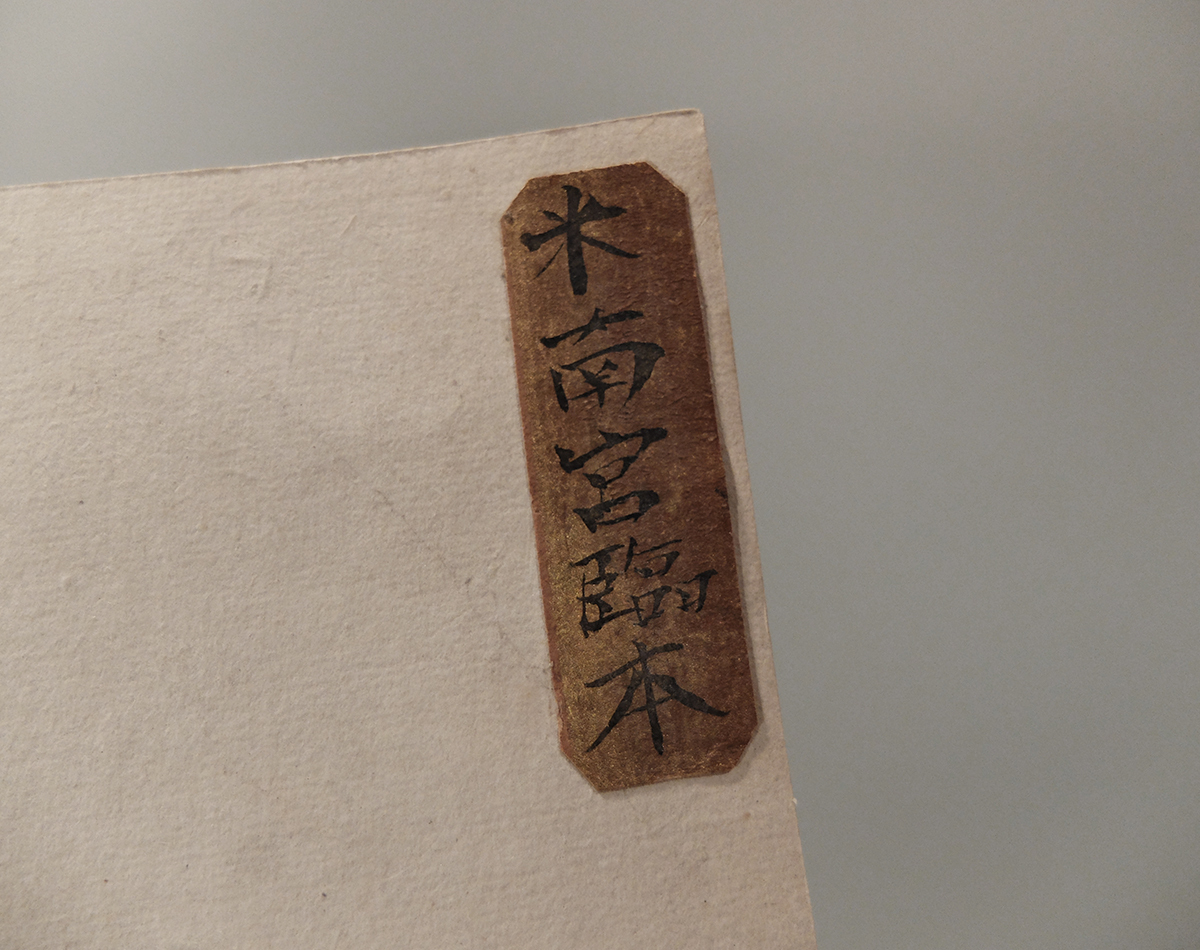 米南宮臨本